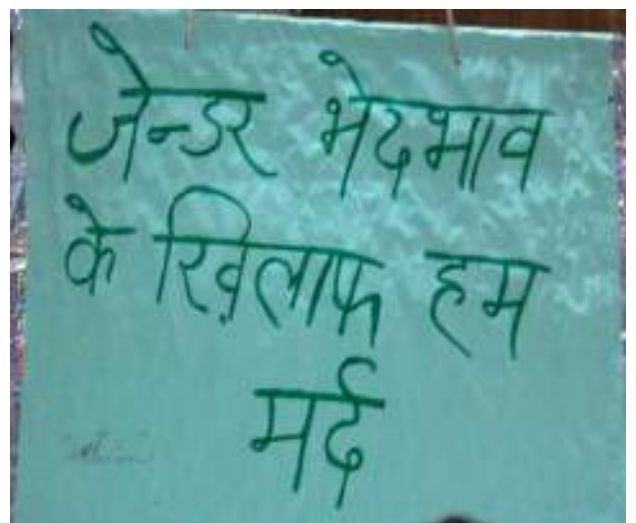 जेन्डर भेदभाव
के ख़िलाफ हम
मर्द